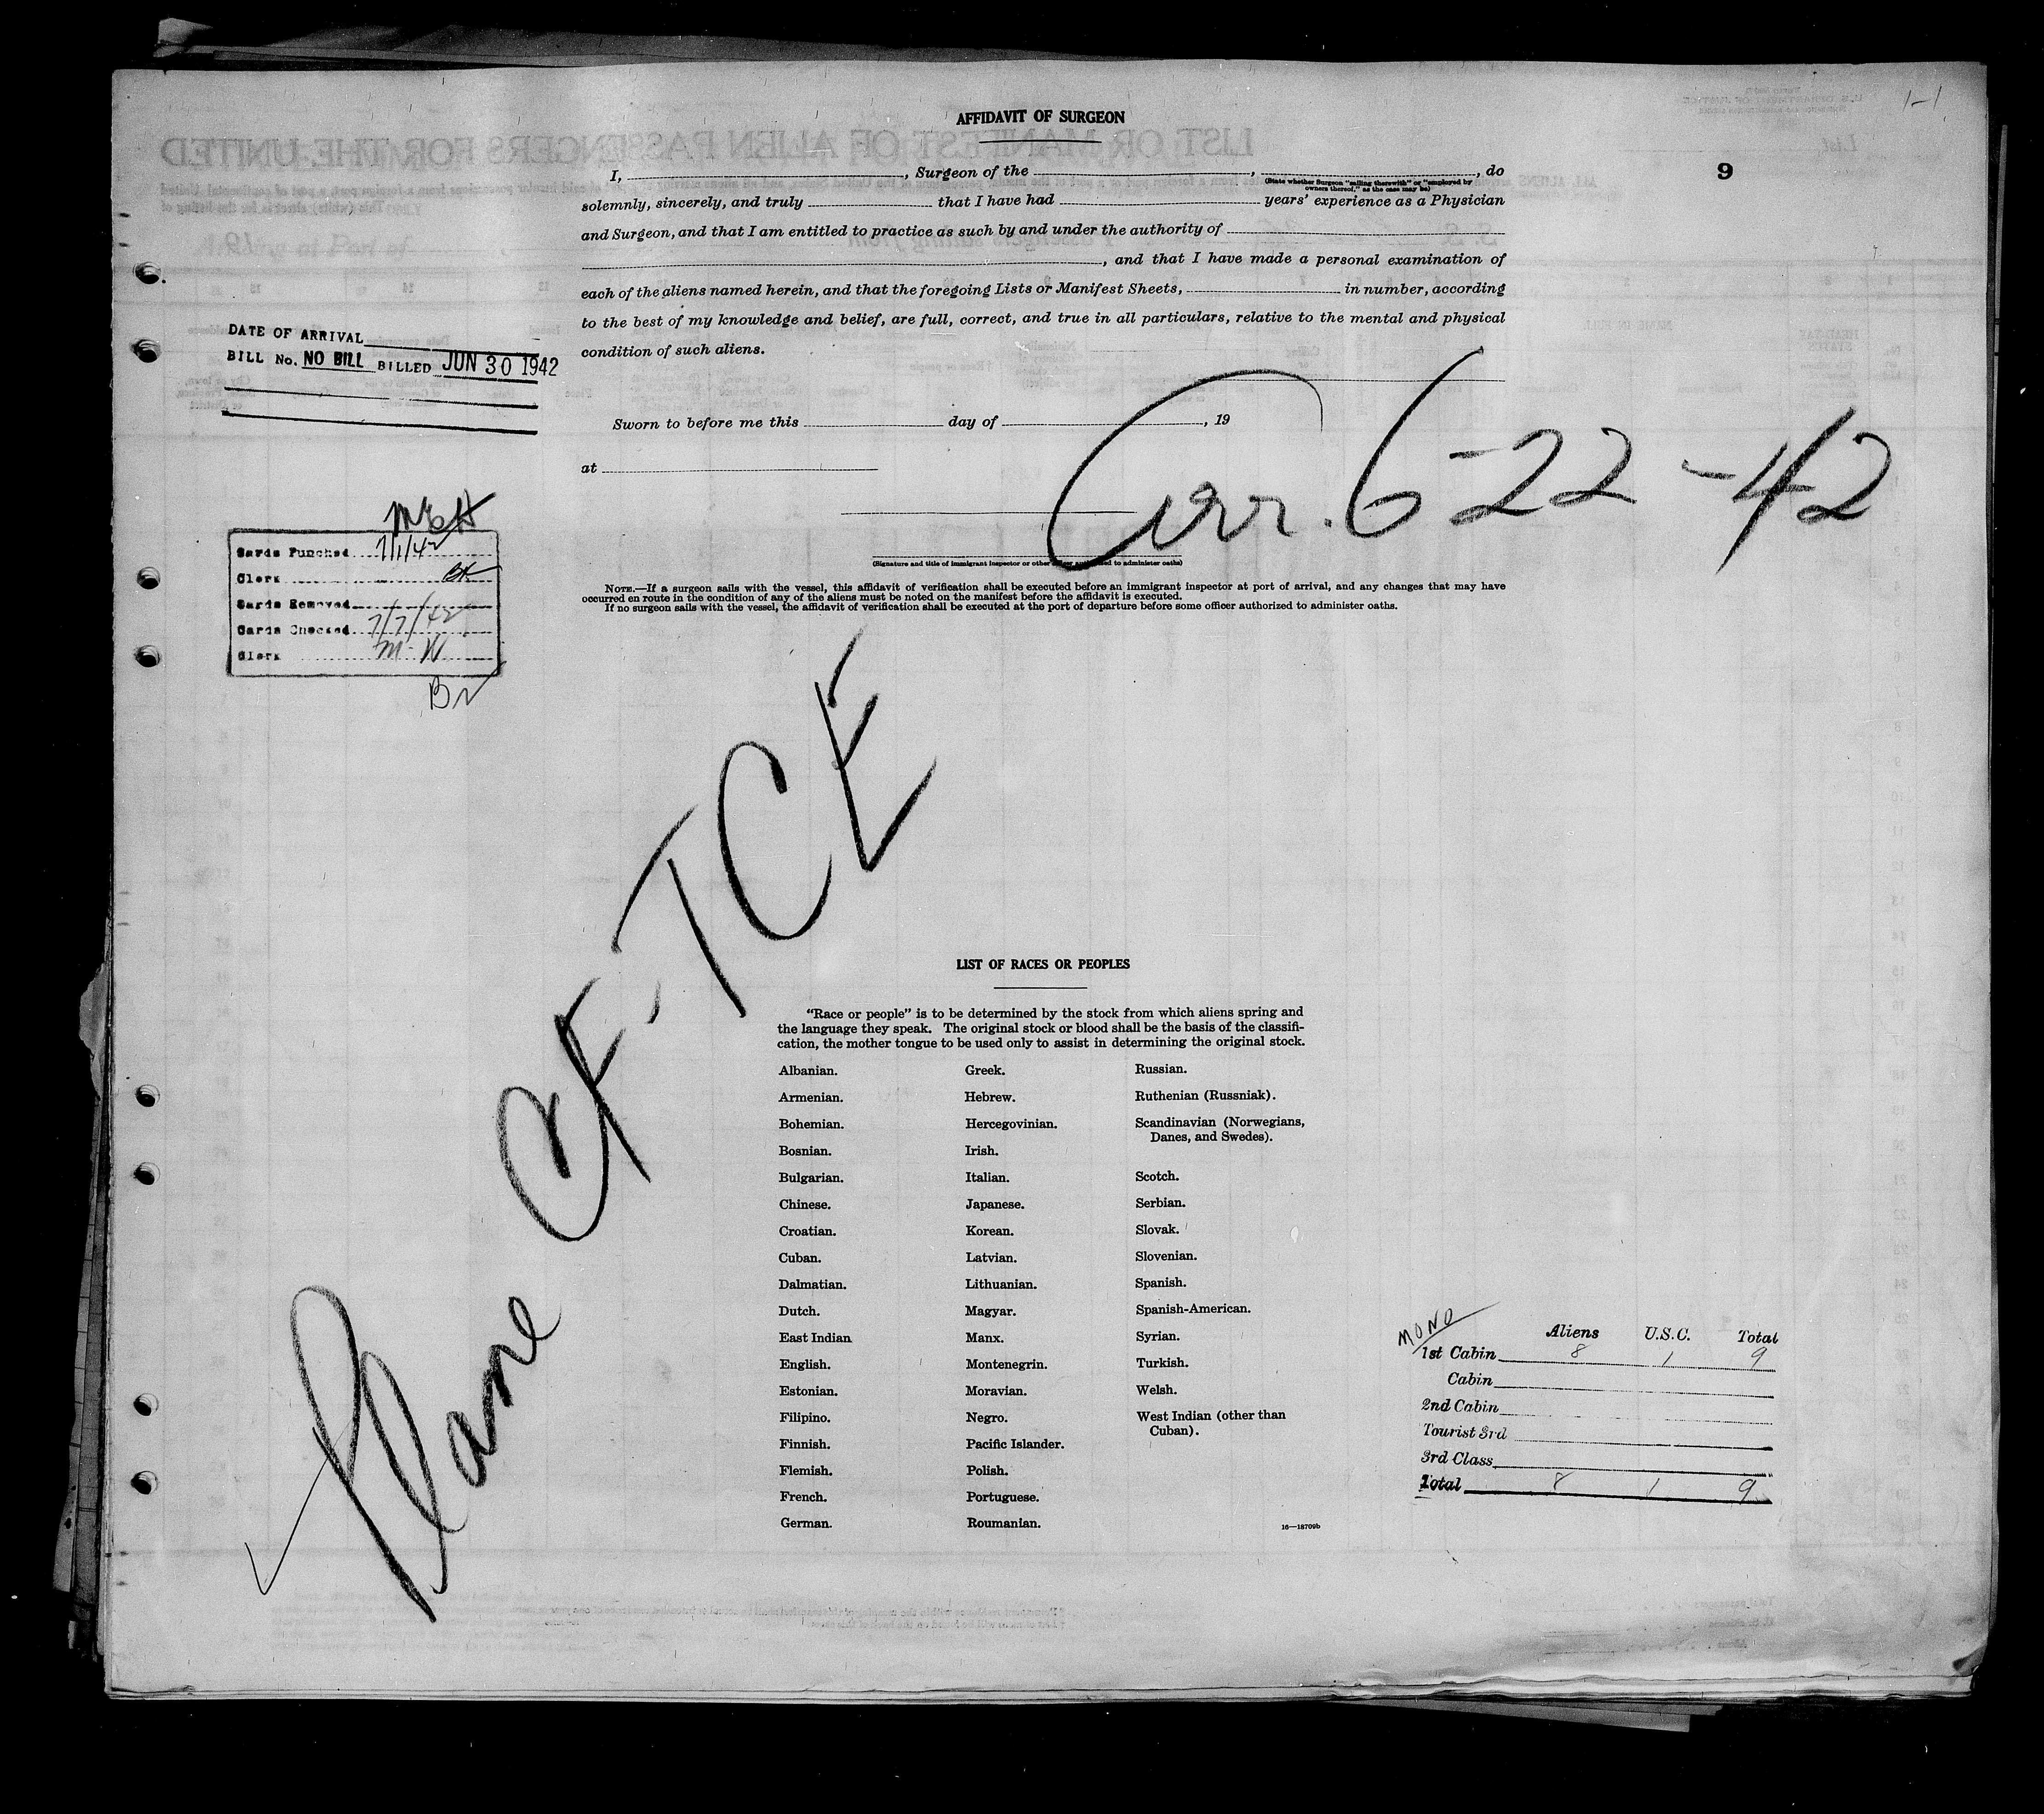 1-1
AFFIDAVIT OF SURGEON
9
I, , Surgeon of the , , do
(State whether Surgeon "sailing therewith" or "employed by
owners thereof," as the case may be)
solemnly, sincerely, and truly that I have had years' experience as a Physician
and Surgeon, and that I am entitled to practice as such by and under the authority of
, and that I have made a personal examination of
each of the aliens named herein, and that the foregoing Lists or Manifest Sheets, in number, according
to the best of my knowledge and belief, are full, correct, and true in all particulars, relative to the mental and physical
condition of such aliens.
DATE OF ARRIVAL
BILL No. NO BILL BILLED JUN 30 1942
Sworn to before me this day of , 19
at
Arr. 6-22-42
(Signature and title of immigrant inspector or other officer authorized to administer oaths)
NOTE.—If a surgeon sails with the vessel, this affidavit of verification shall be executed before an immigrant inspector at port of arrival, and any changes that may have
occurred en route in the condition of any of the aliens must be noted on the manifest before the affidavit is executed.
If no surgeon sails with the vessel, the affidavit of verification shall be executed at the port of departure before some officer authorized to administer oaths.
Cards Punched 7/1/42
Clerk BK
Cards Removed
Cards Checked 7/7/42
Clerk M. W
Plane CF-TCE
LIST OF RACES OR PEOPLES
"Race or people" is to be determined by the stock from which aliens spring and
the language they speak. The original stock or blood shall be the basis of the classifi-
cation, the mother tongue to be used only to assist in determining the original stock.
Albanian.
Armenian.
Bohemian.
Bosnian.
Bulgarian.
Chinese.
Croatian.
Cuban.
Dalmatian.
Dutch.
East Indian
English.
Estonian.
Filipino.
Finnish.
Flemish.
French.
German.
Greek.
Hebrew.
Hercegovinian.
Irish.
Italian.
Japanese.
Korean.
Latvian.
Lithuanian.
Magyar.
Manx.
Montenegrin.
Moravian.
Negro.
Pacific Islander.
Polish.
Portuguese.
Roumanian.
Russian.
Ruthenian (Russniak).
Scandinavian (Norwegians,
Danes, and Swedes).
Scotch.
Serbian.
Slovak.
Slovenian.
Spanish.
Spanish-American.
Syrian.
Turkish.
Welsh.
West Indian (other than
Cuban).
16—18709b
MONO
Aliens U.S.C. Total
1st Cabin 8 1 9
Cabin
2nd Cabin
Tourist 3rd
3rd Class
Total 8 1 9